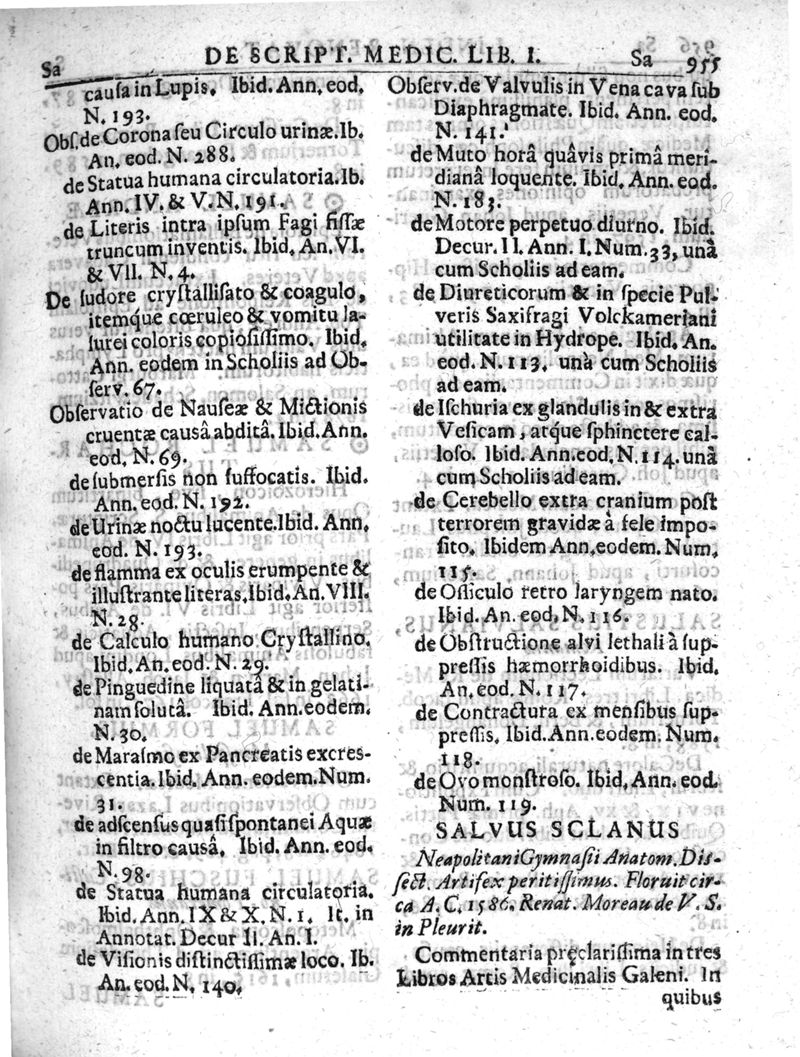 Sa DE SCRIPT. MEDIC. LIB. I. Sa 955
causa in Lupis. Ibid. Ann. eod.
N. 193.
Obs. de Corona seu Circulo urinæ. Ib.
An. eod. N. 288.
de Statua humana circulatoria. Ib.
Ann. IV. & V. N. 191.
de Literis intra ipsum Fagi fissæ
truncum inventis. Ibid. An. VI.
& VII. N. 4.
De sudore crystallisato & coagulo,
itemque cœruleo & vomitu la-
surei coloris copiosissimo. Ibid.
Ann. eodem in Scholiis ad Ob-
serv. 67.
Observatio de Nauseæ & Mictionis
cruentæ causâ abditâ. Ibid. Ann.
eod. N. 69.
de submersis non suffocatis. Ibid.
Ann. eod. N. 192.
de Urinæ noctu lucente. Ibid. Ann.
eod. N. 193.
de flamma ex oculis erumpente &
illustrante literas. Ibid. An. VIII.
N. 28.
de Calculo humano Crystallino.
Ibid. An. eod. N. 29.
de Pinguedine liquatâ & in gelati-
nam solutâ. Ibid. Ann. eodem.
N. 30.
de Marasmo ex Pancreatis excres-
centia. Ibid. Ann. eodem. Num.
31.
de adscensus quasi spontanei Aquæ
in filtro causâ. Ibid. Ann. eod.
N. 98.
de Statua humana circulatoria.
Ibid. Ann. IX & X. N. 1. It. in
Annotat. Decur II. An. I.
de Visionis distinctissimæ loco. Ib.
An. eod. N. 140.
Observ. de Valvulis in Vena cava sub
Diaphragmate. Ibid. Ann. eod.
N. 141.
de Muto horâ quâvis primâ meri-
dianâ loquente. Ibid. Ann. eod.
N. 183.
de Motore perpetuo diurno. Ibid.
Decur. II. Ann. I. Num. 33, unà
cum Scholiis ad eam.
de Diureticorum & in specie Pul-
veris Saxifragi Volckameriani
utilitate in Hydrope. Ibid. An.
eod. N. 113. unà cum Scholiis
ad eam.
de Ischuria ex glandulis in & extra
Vesicam, atque sphinctere cal-
loso. Ibid. Ann. eod. N. 114. unà
cum Scholiis ad eam.
de Cerebello extra cranium post
terrorem gravidæ à fele impo-
sito. Ibidem Ann. eodem. Num.
115.
de Ossiculo retro laryngem nato.
Ibid. An. eod. N. 116.
de Obstructione alvi lethali à sup-
pressis hæmorrhoidibus. Ibid.
An. eod. N. 117.
de Contractura ex mensibus sup-
pressis. Ibid. Ann. eodem. Num.
118.
de Ovo monstroso. Ibid. Ann. eod.
Num. 119.
SALVUS SCLANUS
Neapolitani Gymnasii Anatom. Dis-
sect. Artifex peritissimus. Floruit cir-
ca A. C. 1586. Renat. Moreau de V. S.
in Pleurit.
Commentaria pręclarissima in tres
Libros Artis Medicinalis Galeni. In
quibus